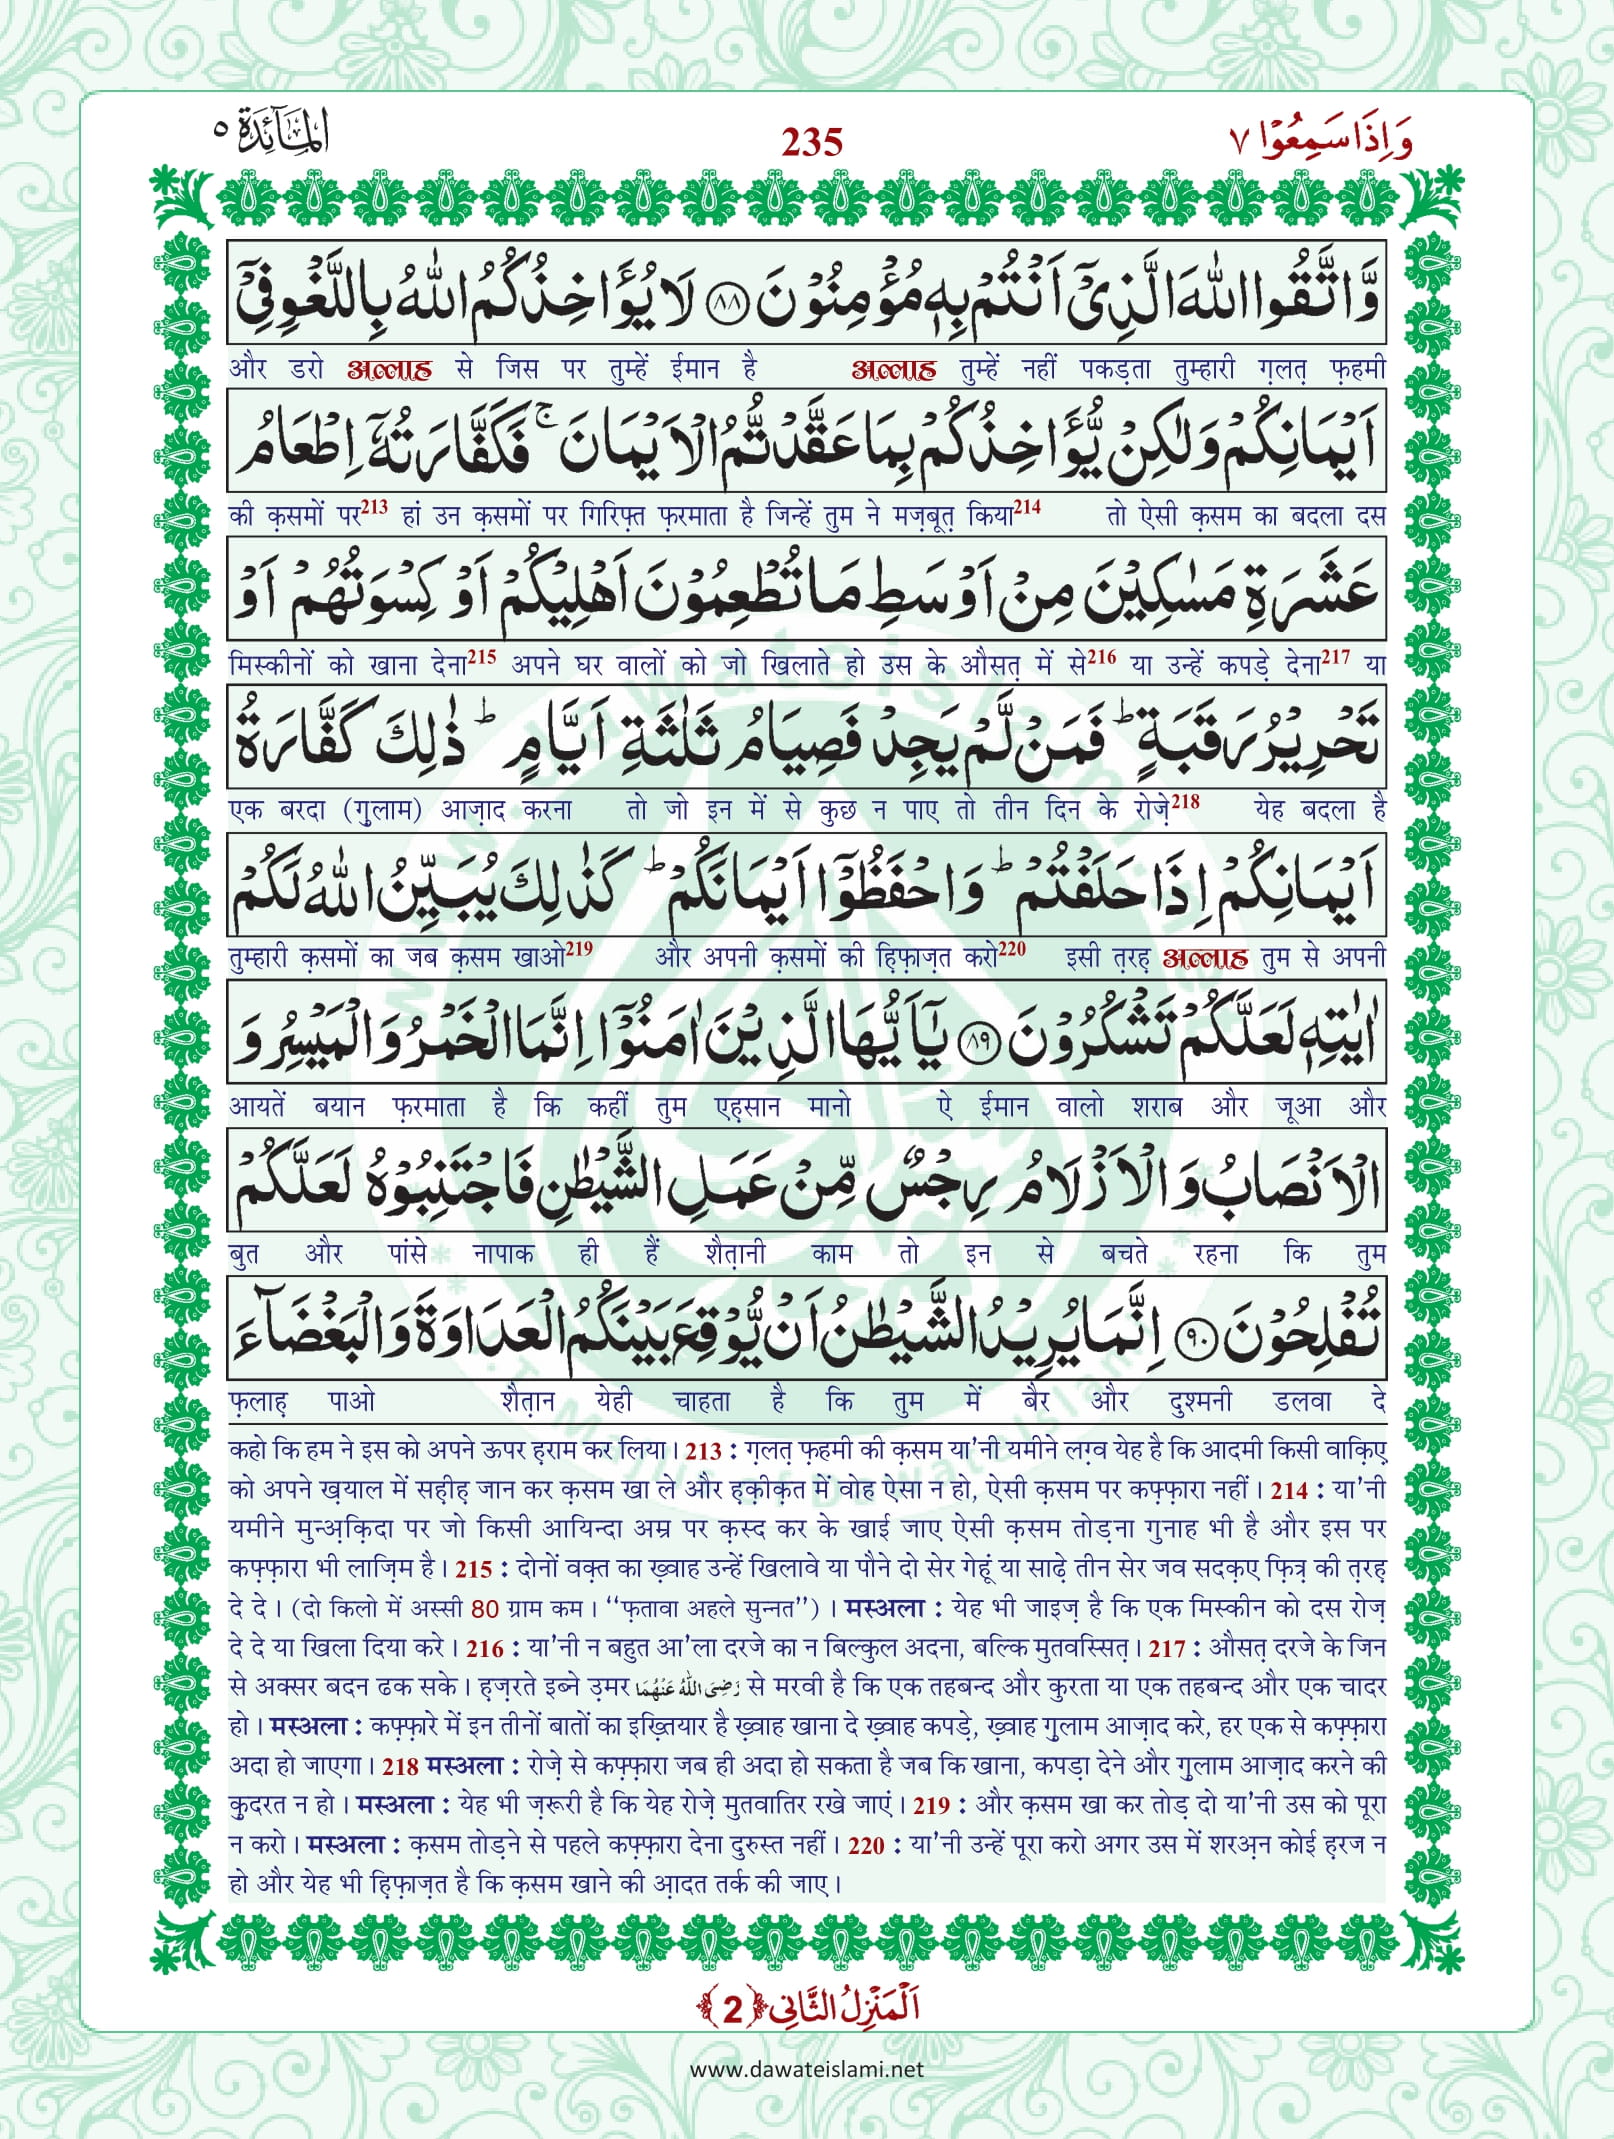 وَاِذَا سَمِعُوْا ٧ 235 اَلْمَآئِدَة ٥
وَّاتَّقُوا اللّٰهَ الَّذِیْۤ اَنْتُمْ بِهٖ مُؤْمِنُوْنَ ﴿۸۸﴾ لَا یُؤَاخِذُكُمُ اللّٰهُ بِاللَّغْوِ فِیْۤ
और डरो अल्लाह से जिस पर तुम्हें ईमान है अल्लाह तुम्हें नहीं पकड़ता तुम्हारी ग़लत़ फ़हमी
اَیْمَانِكُمْ وَلٰكِنْ یُّؤَاخِذُكُمْ بِمَا عَقَّدْتُّمُ الْاَیْمَانَ ۚ فَكَفَّارَتُهٗۤ اِطْعَامُ
की क़समों पर213 हां उन क़समों पर गिरिफ़्त फ़रमाता है जिन्हें तुम ने मज़बूत़ किया214 तो ऐसी क़सम का बदला दस
عَشَرَةِ مَسٰكِیْنَ مِنْ اَوْسَطِ مَا تُطْعِمُوْنَ اَهْلِیْكُمْ اَوْ كِسْوَتُهُمْ اَوْ
मिस्कीनों को खाना देना215 अपने घर वालों को जो खिलाते हो उस के औसत़ में से216 या उन्हें कपड़े देना217 या
تَحْرِیْرُ رَقَبَةٍ ؕ فَمَنْ لَّمْ یَجِدْ فَصِیَامُ ثَلٰثَةِ اَیَّامٍ ؕ ذٰلِكَ كَفَّارَةُ
एक बरदा (ग़ुलाम) आज़ाद करना तो जो इन में से कुछ न पाए तो तीन दिन के रोज़े218 येह बदला है
اَیْمَانِكُمْ اِذَا حَلَفْتُمْ ؕ وَاحْفَظُوْۤا اَیْمَانَكُمْ ؕ كَذٰلِكَ یُبَیِّنُ اللّٰهُ لَكُمْ
तुम्हारी क़समों का जब क़सम खाओ219 और अपनी क़समों की ह़िफ़ाज़त करो220 इसी त़रह़ अल्लाह तुम से अपनी
اٰیٰتِهٖ لَعَلَّكُمْ تَشْكُرُوْنَ ﴿۸۹﴾ یٰۤاَیُّهَا الَّذِیْنَ اٰمَنُوْۤا اِنَّمَا الْخَمْرُ وَالْمَیْسِرُ وَ
आयतें बयान फ़रमाता है कि कहीं तुम एह़सान मानो ऐ ईमान वालो शराब और जूआ और
الْاَنْصَابُ وَالْاَزْلَامُ رِجْسٌ مِّنْ عَمَلِ الشَّیْطٰنِ فَاجْتَنِبُوْهُ لَعَلَّكُمْ
बुत और पांसे नापाक ही हैं शैत़ानी काम तो इन से बचते रहना कि तुम
تُفْلِحُوْنَ ﴿۹۰﴾ اِنَّمَا یُرِیْدُ الشَّیْطٰنُ اَنْ یُّوْقِعَ بَیْنَكُمُ الْعَدَاوَةَ وَالْبَغْضَآءَ
फ़लाह़ पाओ शैत़ान येही चाहता है कि तुम में बैर और दुश्मनी डलवा दे
कहो कि हम ने इस को अपने ऊपर ह़राम कर लिया। 213 : ग़लत़ फ़हमी की क़सम या'नी यमीने लग़्व येह है कि आदमी किसी वाक़िए़
को अपने ख़याल में सह़ीह़ जान कर क़सम खा ले और ह़क़ीक़त में वोह ऐसा न हो, ऐसी क़सम पर कफ़्फ़ारा नहीं। 214 : या'नी
यमीने मुन्अ़क़िदा पर जो किसी आयिन्दा अम्र पर क़स्द कर के खाई जाए ऐसी क़सम तोड़ना गुनाह भी है और इस पर
कफ़्फ़ारा भी लाज़िम है। 215 : दोनों वक़्त का ख़्वाह उन्हें खिलावे या पौने दो सेर गेहूं या साढ़े तीन सेर जव सदक़ए फ़ित़्र की त़रह़
दे दे। (दो किलो में अस्सी 80 ग्राम कम। ‘‘फ़तावा अहले सुन्नत’’)। मस्अला : येह भी जाइज़ है कि एक मिस्कीन को दस रोज़
दे दे या खिला दिया करे। 216 : या'नी न बहुत आ'ला दरजे का न बिल्कुल अदना, बल्कि मुतवस्सित़। 217 : औसत़ दरजे के जिन
से अक्सर बदन ढक सके। ह़ज़रते इब्ने उ़मर رَضِیَ اللّٰهُ عَنْهُمَا से मरवी है कि एक तहबन्द और कुरता या एक तहबन्द और एक चादर
हो। मस्अला : कफ़्फ़ारे में इन तीनों बातों का इख़्तियार है ख़्वाह खाना दे ख़्वाह कपड़े, ख़्वाह ग़ुलाम आज़ाद करे, हर एक से कफ़्फ़ारा
अदा हो जाएगा। 218 मस्अला : रोज़े से कफ़्फ़ारा जब ही अदा हो सकता है जब कि खाना, कपड़ा देने और ग़ुलाम आज़ाद करने की
क़ुदरत न हो। मस्अला : येह भी ज़रूरी है कि येह रोज़े मुतवातिर रखे जाएं। 219 : और क़सम खा कर तोड़ दो या'नी उस को पूरा
न करो। मस्अला : क़सम तोड़ने से पहले कफ़्फ़ारा देना दुरुस्त नहीं। 220 : या'नी उन्हें पूरा करो अगर उस में शरअ़न कोई ह़रज न
हो और येह भी ह़िफ़ाज़त है कि क़सम खाने की आ़दत तर्क की जाए।
اَلْمَنْزِلُ الثَّانِی ﴿2﴾
www.dawateislami.net